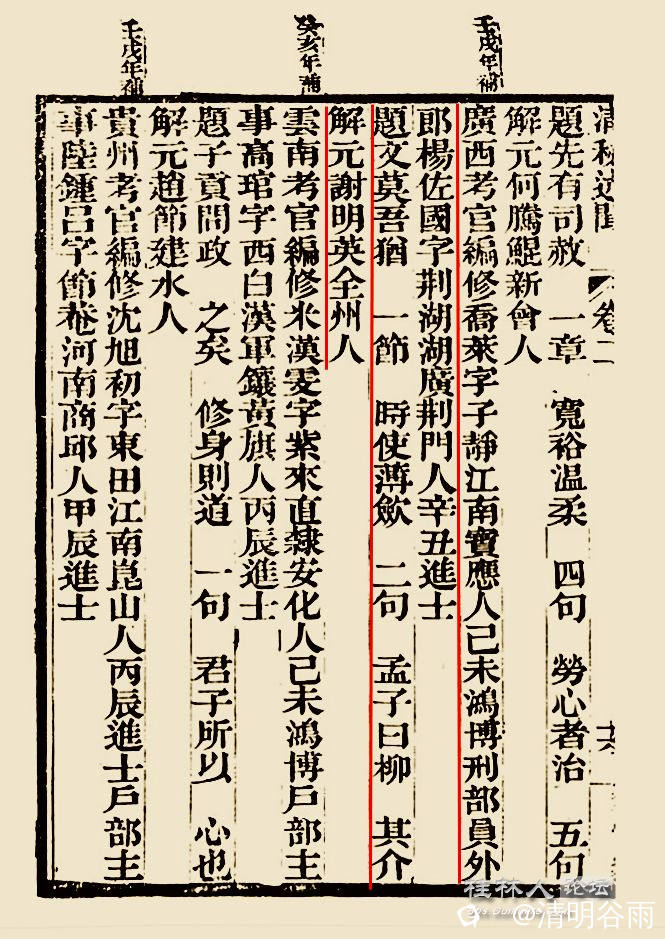 壬戌年補
癸亥年補
壬戌年補
清秘述聞 卷二
題先有司赦 一章 寬裕温柔 四句 勞心者治 五句
解元何騰鯤新會人
廣西考官編修喬萊字子靜江南寶應人己未鴻博刑部員外
郎楊佐國字荆湖湖廣荆門人辛丑進士
題文莫吾猶 一節 時使薄斂 二句 孟子曰柳 其介
解元謝明英全州人
雲南考官編修米漢雯字紫來直隸安化人己未鴻博戶部主
事高琯字西白漢軍鑲黃旗人丙辰進士
題子貢問政 之矣 修身則道 一句 君子所以 心也
解元趙節建水人
貴州考官編修沈旭初字東田江南崑山人丙辰進士戶部主
事陸鍾呂字節菴河南商邱人甲辰進士
桂林人论坛
@清明谷雨